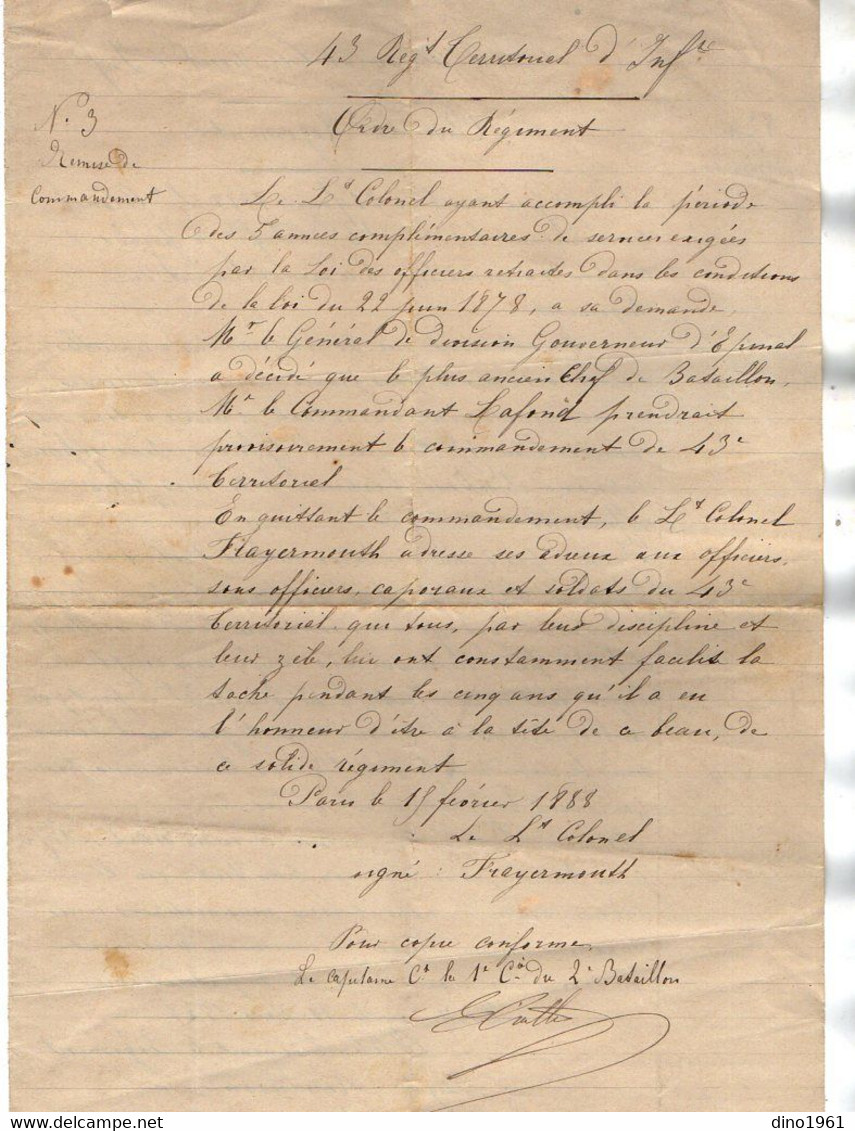 43 Regt Territorial d'Infie
Ordre du Régiment
N.° 3
Remise de
Commandement
Le Lt Colonel ayant accompli la période
des 5 années complémentaires de services exigées
par la Loi des officiers retraités dans les conditions
de la loi du 22 juin 1878, a sa demande,
Mr le Général de division Gouverneur d'Epinal
a décidé que le plus ancien Chef de Bataillon,
Mr le Commandant Lafond prendrait
provisoirement le commandement de 43e
territorial
En quittant le commandement, le Lt Colonel
Frayermouth adresse ses adieux aux officiers,
sous officiers, caporaux et soldats du 43e
territorial que tous, par leur discipline et
leur zèle, lui ont constamment facilité la
tache pendant les cinq ans qu'il a eu
l'honneur d'être à la tête de ce beau, de
ce solide régiment
Paris le 15 février 1888
Le Lt Colonel
signé : Frayermouth
Pour copie conforme,
Le capitaine Ct la 1e Cie du 2e Bataillon
dino1961